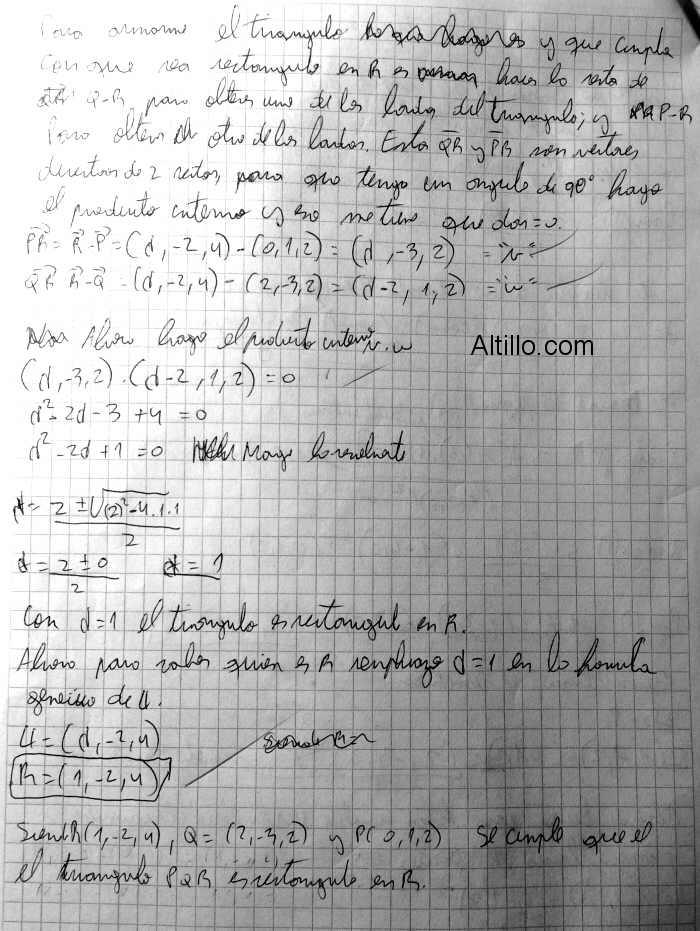 Para armarme el triangulo y que cumpla
con que sea rectangulo en R es hacer la resta de
Q-R para obtener uno de los lados del triangulo; y P-R
Para obtener otro de los lados. Estos QR y PR son vectores
directores de 2 rectas, para que tenga un angulo de 90° hago
el producto interno y eso me tiene que dar = 0.
PR = R - P = (d, -2, 4) - (0, 1, 2) = (d, -3, 2) = "v"
QR R-Q = (d, -2, 4) - (2, -3, 2) = (d-2, 1, 2) = "w"
Ahora hago el producto interno v.w
Altillo.com
(d, -3, 2) . (d-2, 1, 2) = 0
d² - 2d - 3 + 4 = 0
d² - 2d + 1 = 0 Hago
d = 2 ± √(2)² - 4.1.1
2
d = 2 ± 0 d = 1
2
Con d=1 el triangulo es rectangul en R.
Ahora para saber quien es R remplazo d=1 en la formula
generica de U.
U = (d, -2, 4)
R = (1, -2, 4)
Siendo R(1, -2, 4), Q = (2, -3, 2) y P(0, 1, 2) Se cumple que el
el triangulo PQR es rectangulo en R.